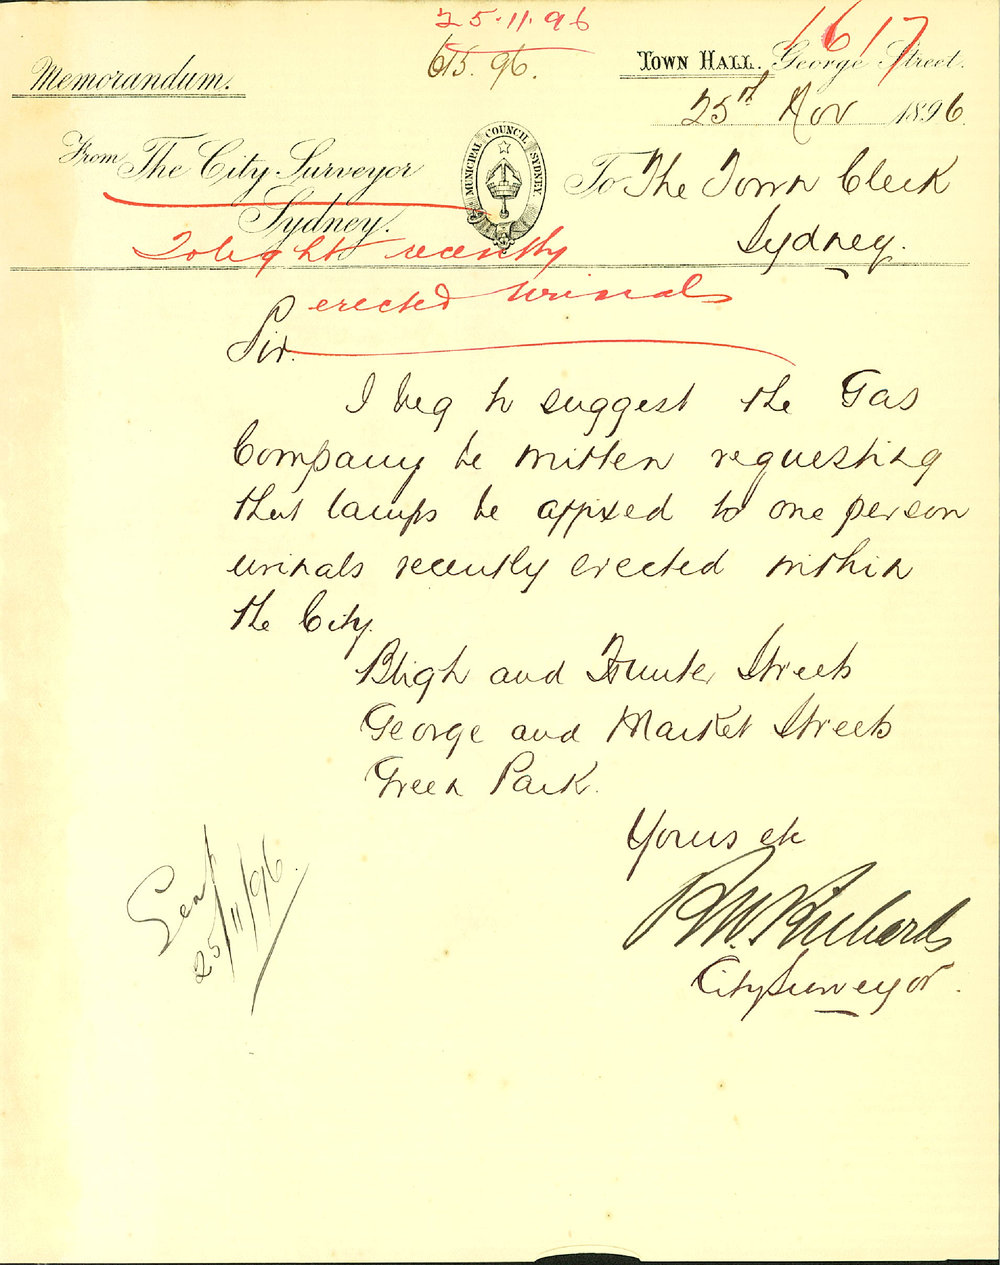 25.11.96
615.96.
1617
Memorandum.
TOWN HALL. George Street.
25th Nov 1896
From The City Surveyor
Sydney.
MUNICIPAL COUNCIL SYDNEY
To The Town Clerk
Sydney.
To light recently
erected urinals
Sir.
I beg to suggest the Gas
Company be written requesting
that lamps be affixed to one person
urinals recently erected within
the City.
Bligh and Hunter Streets
George and Market Streets
Green Park.
Yours etc
R.W. Richards
City Surveyor.
25/11/96.